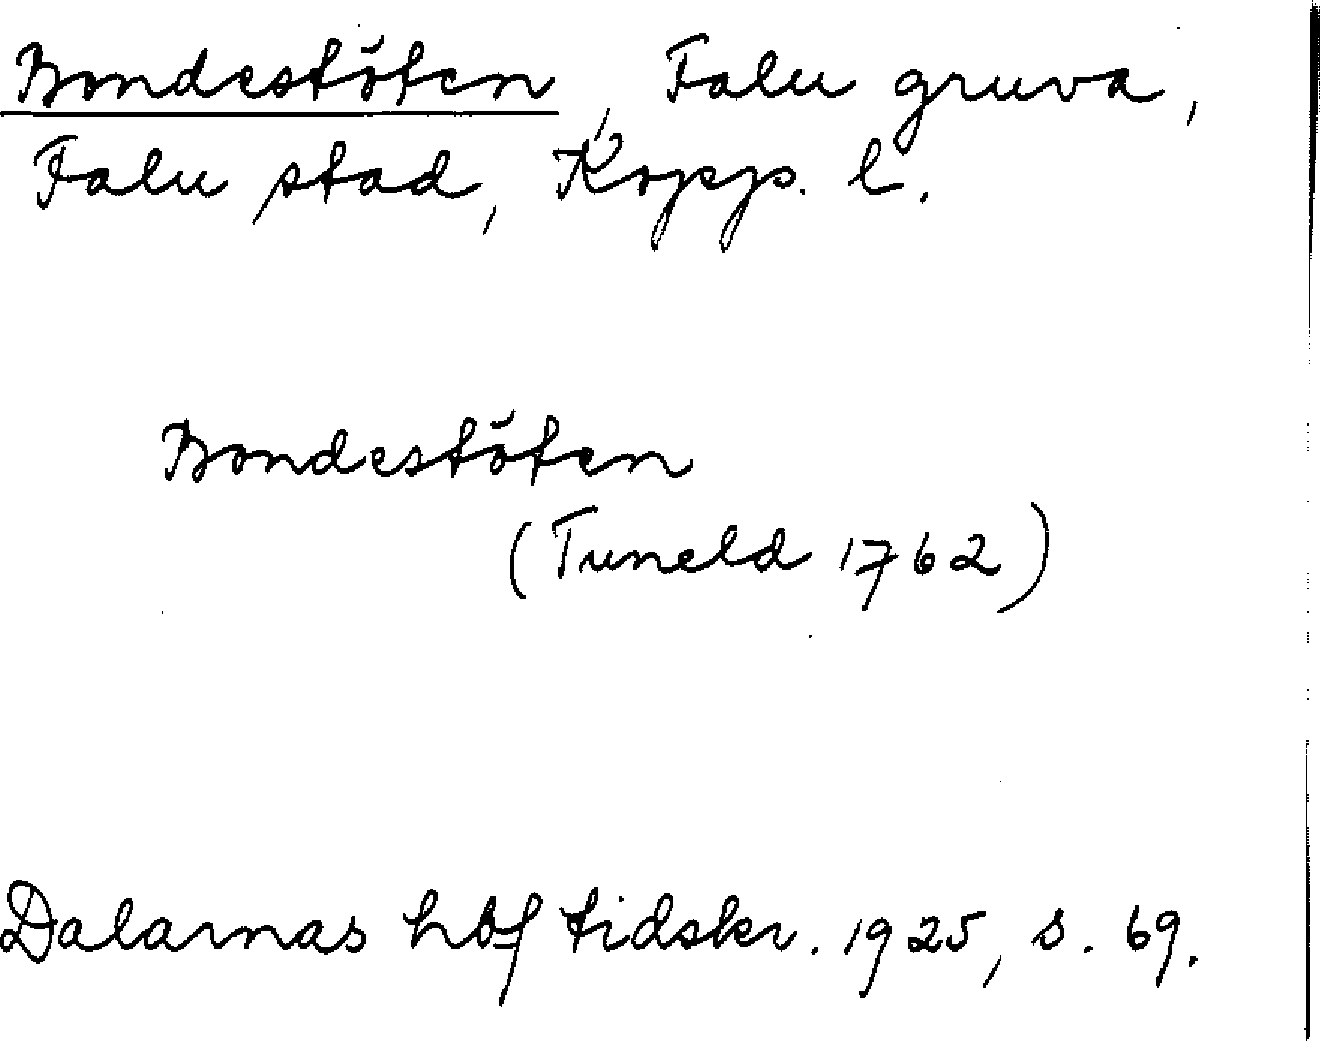 Bondestöten, Falu gruva,
Falu stad, Kopp. l.
Bondestöten
(Tuneld 1762)
Dalarnas hbf tidskr. 1925, s. 69.